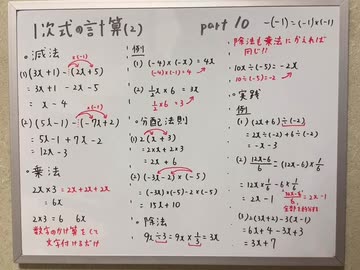 1次式の計算(2)
part 10
-(-1)=(-1)×(-1)
。減法
×(-1)
(1)(3x+1)-(2x+5)
=3x+1-2x-5
=x-4
×(-1)
(2)(5x-1)-(-7x+2)
=5x-1+7x-2
=12x-3
。乗法
2x×3=2x+2x+2x
=6x
2×3=6 6x
数字のかけ算をして
文字付けるだけ
例
(1)(-4)×(-x)=4x
(-4)×(-1)=4
(2)1/2x×6=3x
1/2×6=3
。分配法則
(1)2(x+3)
=2×x+2×3
=2x+6
(2)(-3x-2)×(-5)
=(-3x)×(-5)-2×(-5)
=15x+10
。除法
9x÷3=9x×1/3=3x
。除法も乗法にかえれば
同じ!!
10x÷(-5)=-2x
10÷(-5)=-2
。実践
例
(1)(2x+6)÷(-2)
=(2x÷(-2)+6÷(-2)
=-x-3
(2)12x-6/6=(12x-6)×1/6
=12x×1/6-6×1/6
=2x-1
12x-6/6=2x-1
全部を約分
(3)2(3x+2)-3(x-1)
=6x+4-3x+3
=3x+7